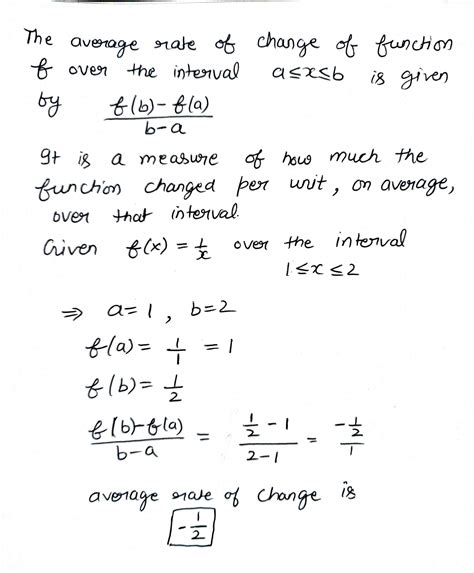 The average rate of change of function
f over the interval a≤x≤b is given
by f(b)-f(a)/b-a
It is a measure of how much the
function changed per unit, on average,
over that interval.
Given f(x) = 1/x over the interval
1≤x≤2
⇒ a=1, b=2
f(a) = 1/1 = 1
f(b) = 1/2
f(b)-f(a)/b-a = 1/2-1/2-1 = -1/2/1
average rate of change is
-1/2